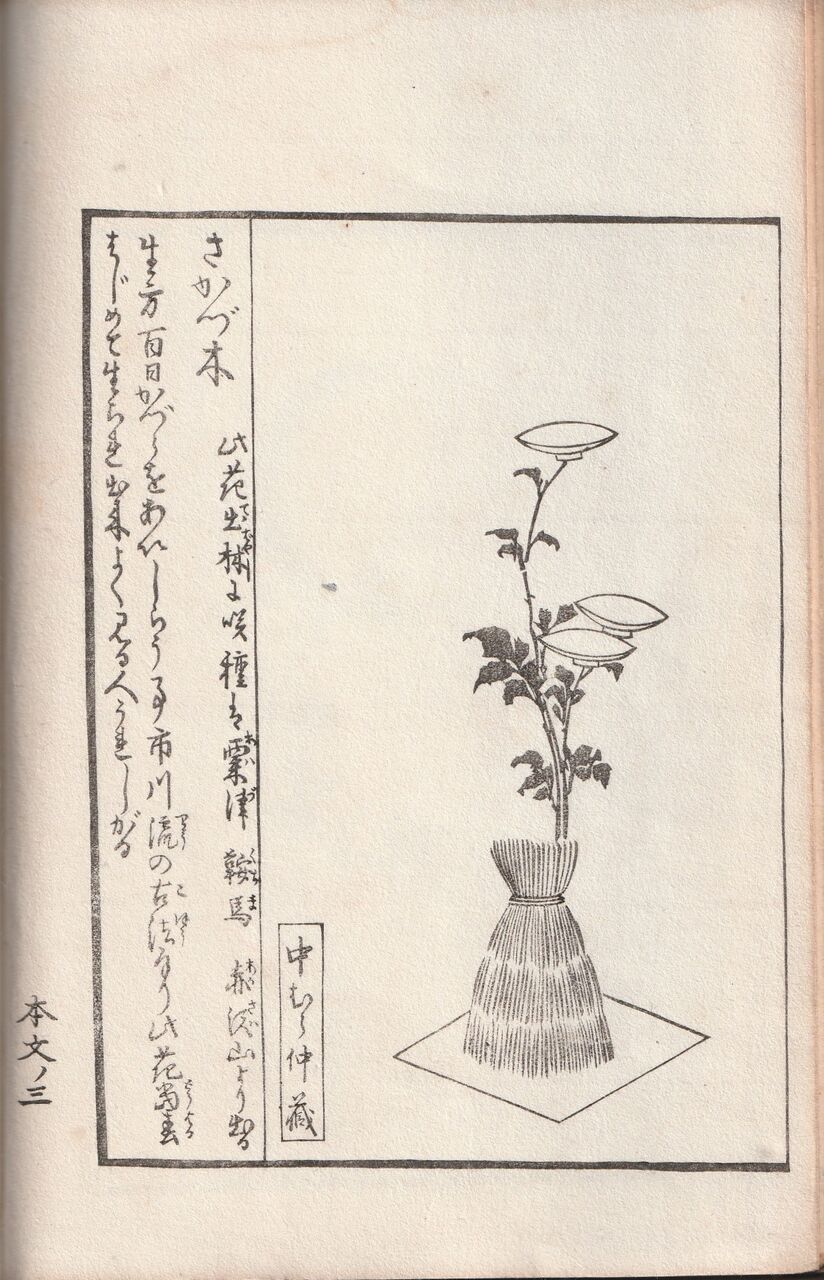 中むら仲藏
さかづ木 此花出林に咲種は粟津 鞍馬 赤澤山より出る
生方百日かづらをあいしらう事市川流の古法なり此花當春
はじめて生られ出来よく見る人うれしがる
本文ノ三